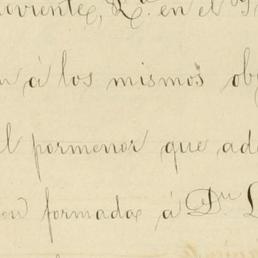 en el
n á los mismos ob
l pormenor que ad
on formada á D.n L